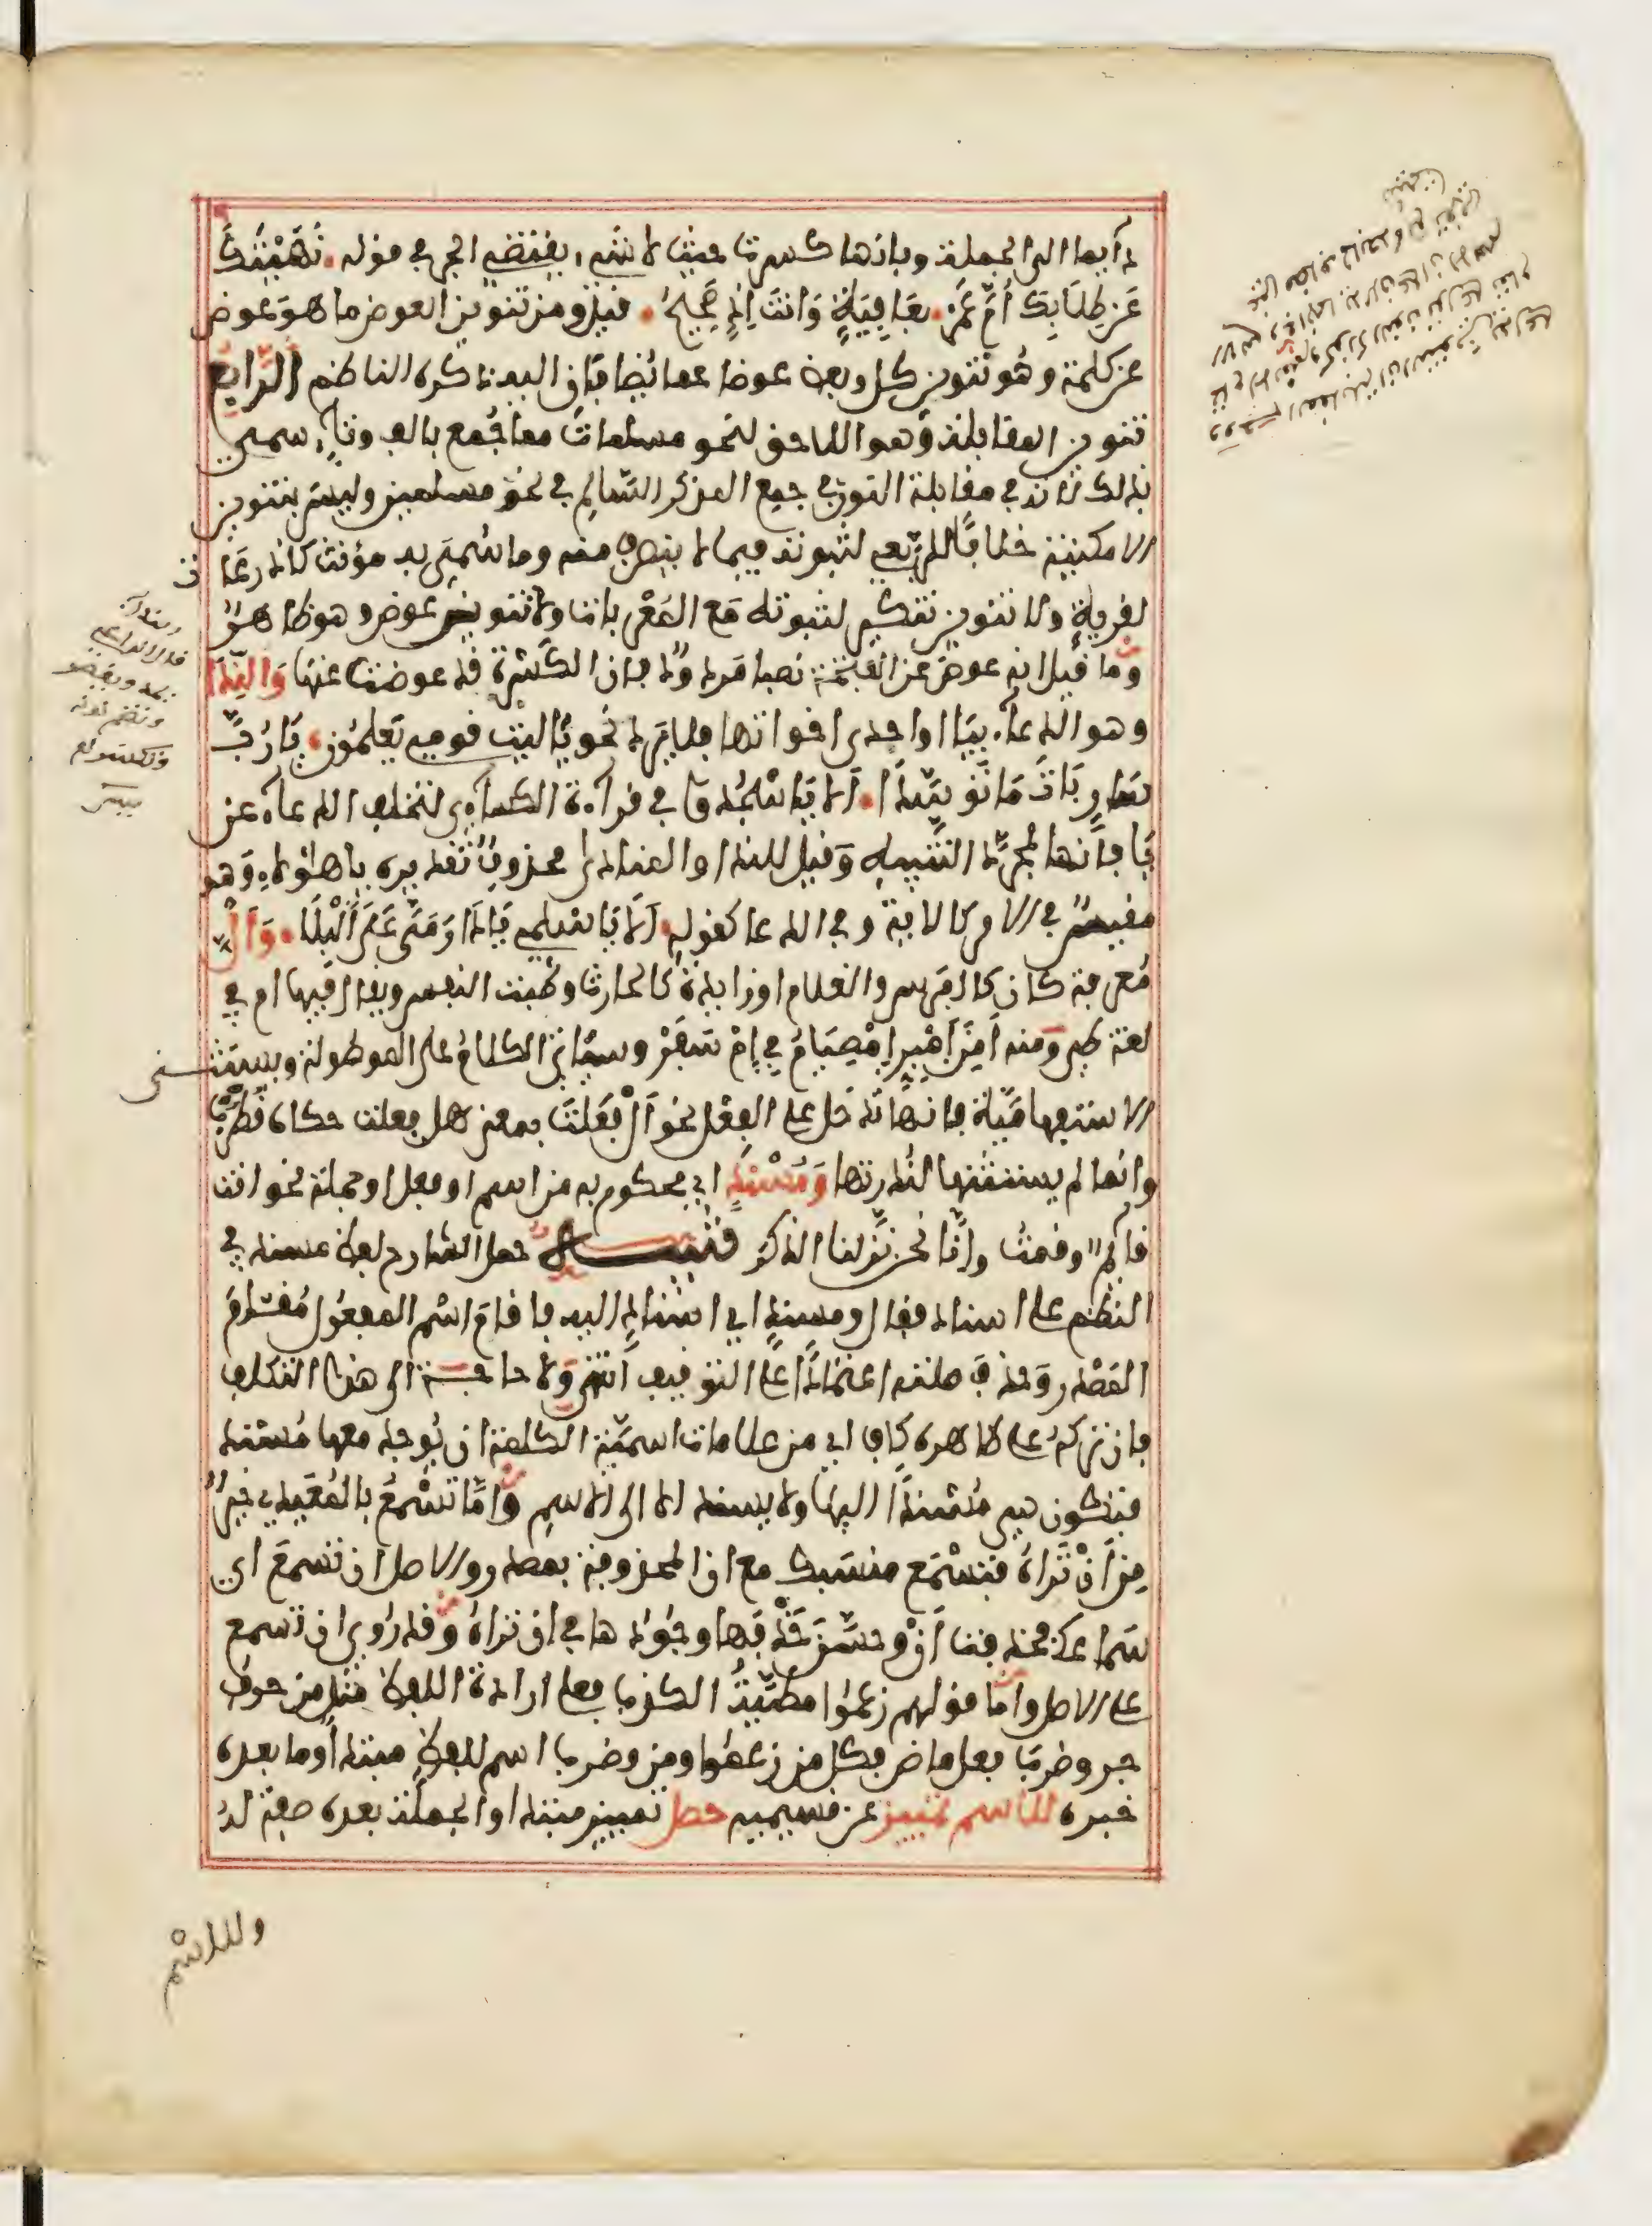 دآيما الى الجملة وبانها كسرت حيث لا شيء يقتضى الجر في قوله . نَهَيْتُكَ
عَن طِلَابِكَ أُمَّ عَمْرٍو . بِعَافِيَةٍ وَانتَ اِذٍ صَحِيحُ . قيل ومن تنوين العوض ما هو عوض
عن كلمة وهو تنوين كل وبعض عوضا عما يضافان اليه ذكره الناظم الرابع
تنوين المقابلة وهو اللاحق لنحو مسلمات مما جمع بالف وتاء سمى
بذلك لانه في مقابلة النون في جمع المذكر السالم في نحو مسلمين وليس بتنوين
الامكنية خلافا للربعى لثبوته فيما لا ينصرف منه وما سمى به مؤنث كاذرعات
لقرية ولا تنوين تنكير لثبوته مع المعربات ولا تنوين عوض وهو ظاهر
وما قيل انه عوض عن الفتحة نصبا مردود فان الكسرة قد عوضت عنها وَالنِّدَا
وهو الدعاء بيا او احدى اخواتها فلا يرد نحو يا ليت قومى يعلمون . يَا رُبَّ
سَارٍ بَاتَ مَا تَوَسَّدَا . اَلَا يَا اسْجُدُوا في قرآءة الكسآءى لتخلف الدعآء عن
يا فانها لمجرد التنبيه وقيل للندا والمنادى محذوف تقديره يا هؤلاء وهو
مقيس في الامر كالاية وفي الدعا كقوله . اَلَا يَا اسْلَمِى يَا دَارَ مَىَّ عَلَى الْبِلَا . وَاَلْ
معرفة كان كالفرس والغلام او زايدة كالحارث وطبت النفس ويقال فيها ام في
لغة طى ومنه اَمِنَ اَمْبِرِّ اِمْصِيَامُ فِي اِمْ سَفَرْ وسياتى الكلام على الموصولة ويستثنى
الاستفهامية فانها تدخل على الفعل نحو اَلْ فَعَلْتَ بمعنى هل فعلت حكاه قطرب
وانما لم يستثنها لندرتها وَمُسْنَدٍ اى محكوم به من اسم او فعل او جملة نحو انت
قايم وقمت وانا نحن نزلنا الذكر تنبيه حمل الشارح لفظ مسند في
النظم على اسناد فقال ومسند اى اسناد اليه فاقام اسم المفعول مقام
المصدر وحذف صلته اعتمادا على التوقيف انتهى ولا حاجة الى هذا التكلف
فان تركه على ظاهره كاف اى من علامات اسمية الكلمة ان يوجد معها مسند
فتكون هى مسندا اليها ولا يسند الا الى الاسم واما تسمع بالمعيدى خير
من ان تراه فتسمع منسبك مع ان المحذوفة بمصدر والاصل ان تسمع اى
سماعك فحذفت ان وحسن حذفها وجودها في ان تراه وقد روى ان تسمع
على الاصل واما قولهم زعموا مطية الكذب فعلى ارادة اللفظ مثل من حرف
جر وضرب فعل ماض فكل من زعموا ومن وضرب اسم للفظ مبتدا وما بعده
خبره للاسم تمييز عن قسيميه حصل تمييز مبتدا والجملة بعده صفة له
وللاسم